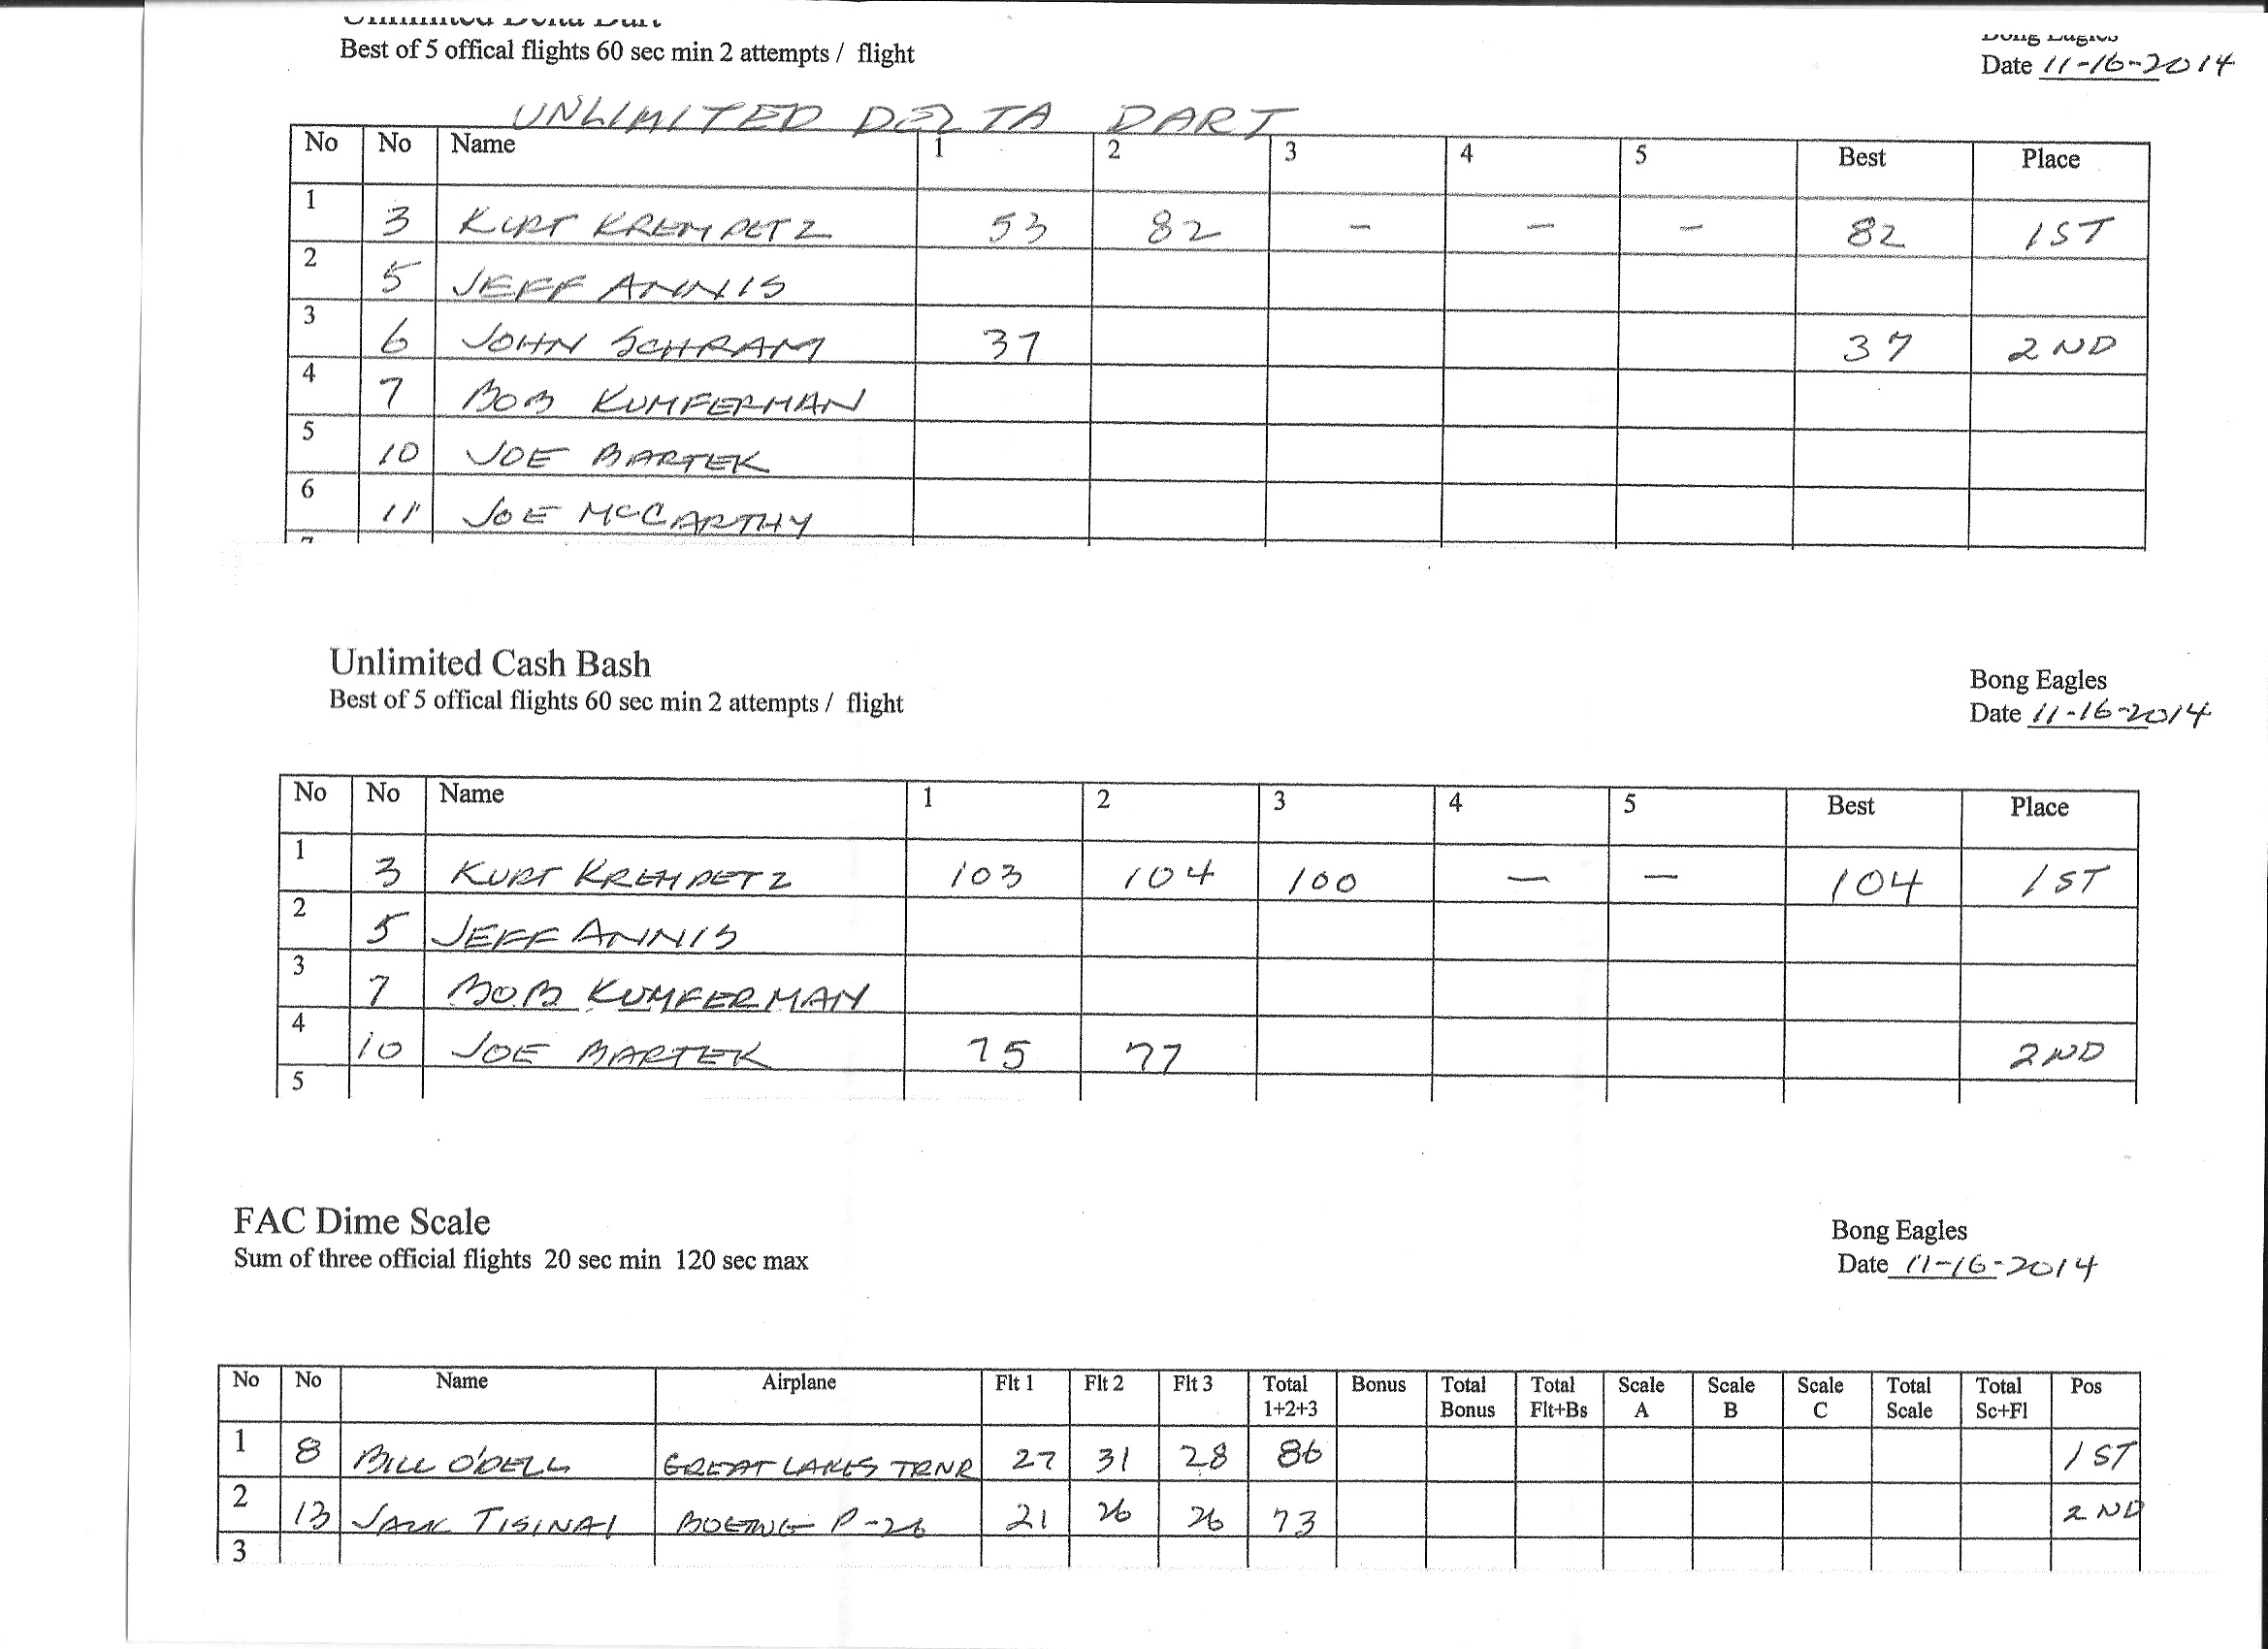 Unlimited Delta Dart
Best of 5 offical flights 60 sec min 2 attempts / flight
Bong Eagles
Date 11-16-2014
UNLIMITED DELTA DART
No No Name 1 2 3 4 5 Best Place
1 3 KURT KREMPETZ 53 82 - - - 82 1ST
2 5 JEFF ANNIS
3 6 JOHN SCHRAM 37 37 2ND
4 7 BOB KUMFERMAN
5 10 JOE BARTEK
6 11 JOE McCARTHY
7
Unlimited Cash Bash
Best of 5 offical flights 60 sec min 2 attempts / flight
Bong Eagles
Date 11-16-2014
No No Name 1 2 3 4 5 Best Place
1 3 KURT KREMPETZ 103 104 100 - - 104 1ST
2 5 JEFF ANNIS
3 7 BOB KUMFERMAN
4 10 JOE BARTEK 75 77 2ND
5
FAC Dime Scale
Sum of three official flights 20 sec min 120 sec max
Bong Eagles
Date 11-16-2014
No No Name Airplane Flt 1 Flt 2 Flt 3 Total 1+2+3 Bonus Total Bonus Total Flt+Bs Scale A Scale B Scale C Total Scale Total Sc+Fl Pos
1 8 BILL O'DELL GREAT LAKES TRNR 27 31 28 86 1ST
2 13 JACK TISINAI BOEING P-26 21 26 26 73 2ND
3